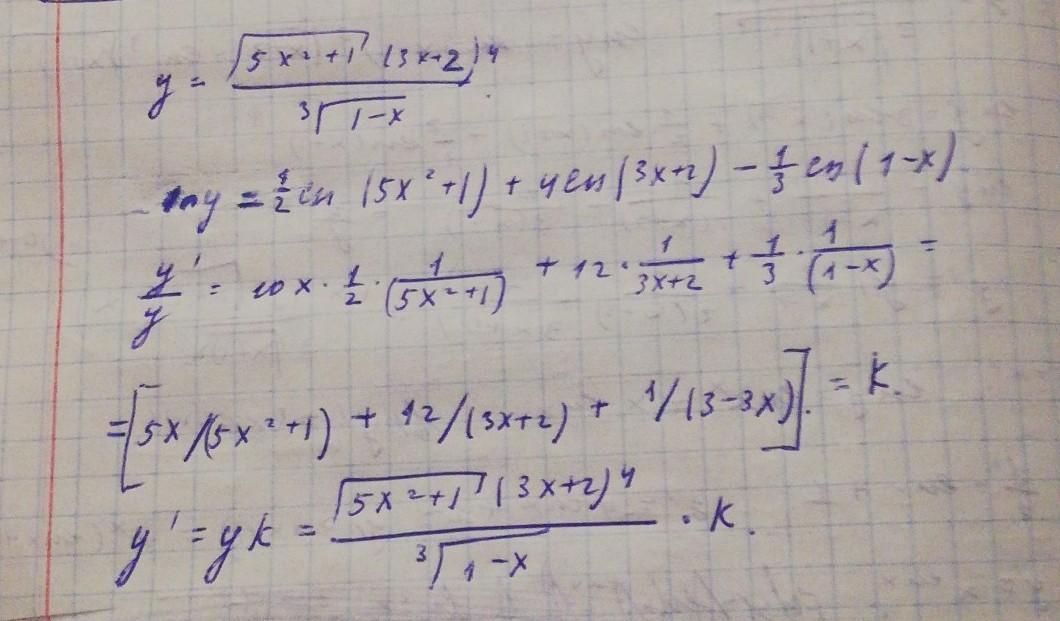 y = √(5x²+1) (3x+2)⁴ / ³√(1-x)
ln y = 1/2 ln (5x²+1) + 4 ln (3x+2) - 1/3 ln (1-x)
y'/y = 10x · 1/2 · 1/(5x²+1) + 12 · 1/(3x+2) + 1/3 · 1/(1-x) =
= [5x/(5x²+1) + 12/(3x+2) + 1/(3-3x)] = K.
y' = yK = √(5x²+1) (3x+2)⁴ / ³√(1-x) · K.